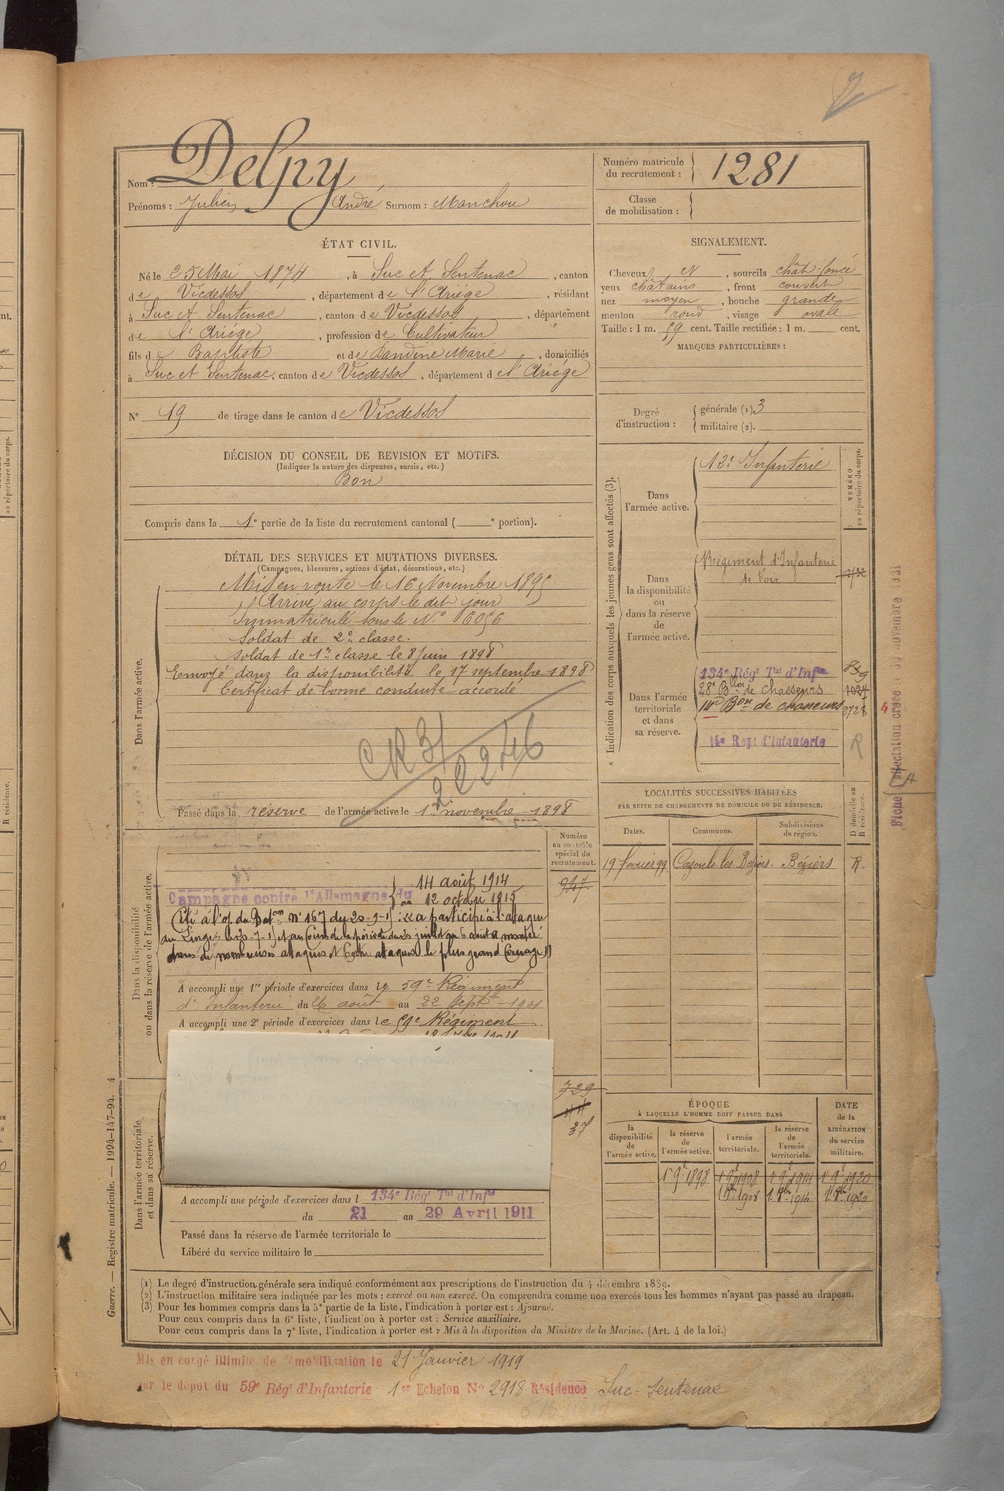 Nom : Delpy
Numéro matricule du recrutement : 1281
Prénoms : Julien André Surnom : Manchou
Classe de mobilisation :
ÉTAT CIVIL.
Né le 25 Mai 1874, à Suc et Sentenac, canton
de Vicdessos, département de l'Ariége, résidant
à Suc et Sentenac, canton de Vicdessos, département
de l'Ariége, profession de Cultivateur
fils de Baptiste et de Dandine Marie, domiciliés
à Suc et Sentenac, canton de Vicdessos, département de l'Ariége
N° 19 de tirage dans le canton de Vicdessos
SIGNALEMENT.
Cheveux et, sourcils chât. foncé
yeux châtains, front couvert
nez moyen, bouche grande
menton rond, visage ovale
Taille : 1 m. 59 cent. Taille rectifiée : 1 m. cent.
MARQUES PARTICULIÈRES :
Degré d'instruction : générale (1) 3
militaire (2).
DÉCISION DU CONSEIL DE REVISION ET MOTIFS.
(Indiquer la nature des dispenses, sursis, etc.)
Bon
Compris dans la 1e partie de la liste du recrutement cantonal ( e portion).
DÉTAIL DES SERVICES ET MUTATIONS DIVERSES.
(Campagnes, blessures, actions d'éclat, décorations, etc.)
Dans l'armée active.
Mis en route le 16 Novembre 1895
Arrivé au corps le dit jour
Immatriculé sous le N° 6056
Soldat de 2e classe.
Soldat de 1re classe le 8 juin 1898
Envoyé dans la disponibilité le 17 septembre 1898
Certificat de bonne conduite accordé
Passé dans la réserve de l'armée active le 1er novembre 1898
Indication des corps auxquels les jeunes gens sont affectés (3).
NUMÉRO au répertoire du corps.
Dans l'armée active.
12e Infanterie
Dans la disponibilité ou dans la réserve de l'armée active.
Régiment d'Infanterie
de Foix
Dans l'armée territoriale et dans sa réserve.
134e Rég' T'al d'Inf'ie
28e B'lon de Chasseurs 1024
14e B'on de chasseurs
14e Rég't d'Infanterie
LOCALITÉS SUCCESSIVES HABITÉES
PAR SUITE DE CHANGEMENTS DE DOMICILE OU DE RÉSIDENCE.
Dates. Communes. Subdivisions de région. D domicile ou R résidence.
19 février 99 Cazouls les Béziers Béziers R.
Dans la disponibilité ou dans la réserve de l'armée active.
Numéro au contrôle spécial du recrutement.
947
Campagne contre l'Allemagne du 14 août 1914
au 12 octobre 1915
A accompli une 1re période d'exercices dans le 59e Régiment
d'Infanterie du 26 août au 22 Sept 1901
A accompli une 2e période d'exercices dans le 59e Régiment
729
37
Dans l'armée territoriale et dans sa réserve.
A accompli une période d'exercices dans l 134e Rég' T'al d'Inf'ie
du 21 au 29 Avril 1911
Passé dans la réserve de l'armée territoriale le
Libéré du service militaire le
ÉPOQUE
À LAQUELLE L'HOMME DOIT PASSER DANS
la disponibilité de l'armée active. la réserve de l'armée active. l'armée territoriale. la réserve de l'armée territoriale.
DATE de la LIBÉRATION du service militaire.
1er 9bre 1898 1er 9bre 1908 1er 9bre 1914 1er 9bre 1920
Guerre. — Registre matricule. — 1994-147-94. 4
(1) Le degré d'instruction générale sera indiqué conformément aux prescriptions de l'instruction du 4 décembre 1889.
(2) L'instruction militaire sera indiquée par les mots : exercé ou non exercé. On comprendra comme non exercés tous les hommes n'ayant pas passé au drapeau.
(3) Pour les hommes compris dans la 5e partie de la liste, l'indication à porter est : Ajourné.
Pour ceux compris dans la 6e liste, l'indication à porter est : Service auxiliaire.
Pour ceux compris dans la 7e liste, l'indication à porter est : Mis à la disposition du Ministre de la Marine. (Art. 4 de la loi.)
Mis en congé illimité de démobilisation le 21 Janvier 1919
par le dépôt du 59e Rég' d'Infanterie 1er Echelon N° 2918 Résidence Suc-Sentenac